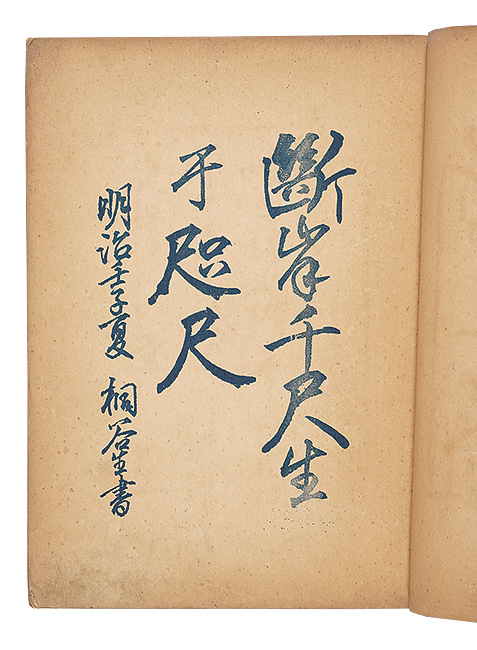 斷岸千尺生
于咫尺
明治壬子夏 桐谷生書